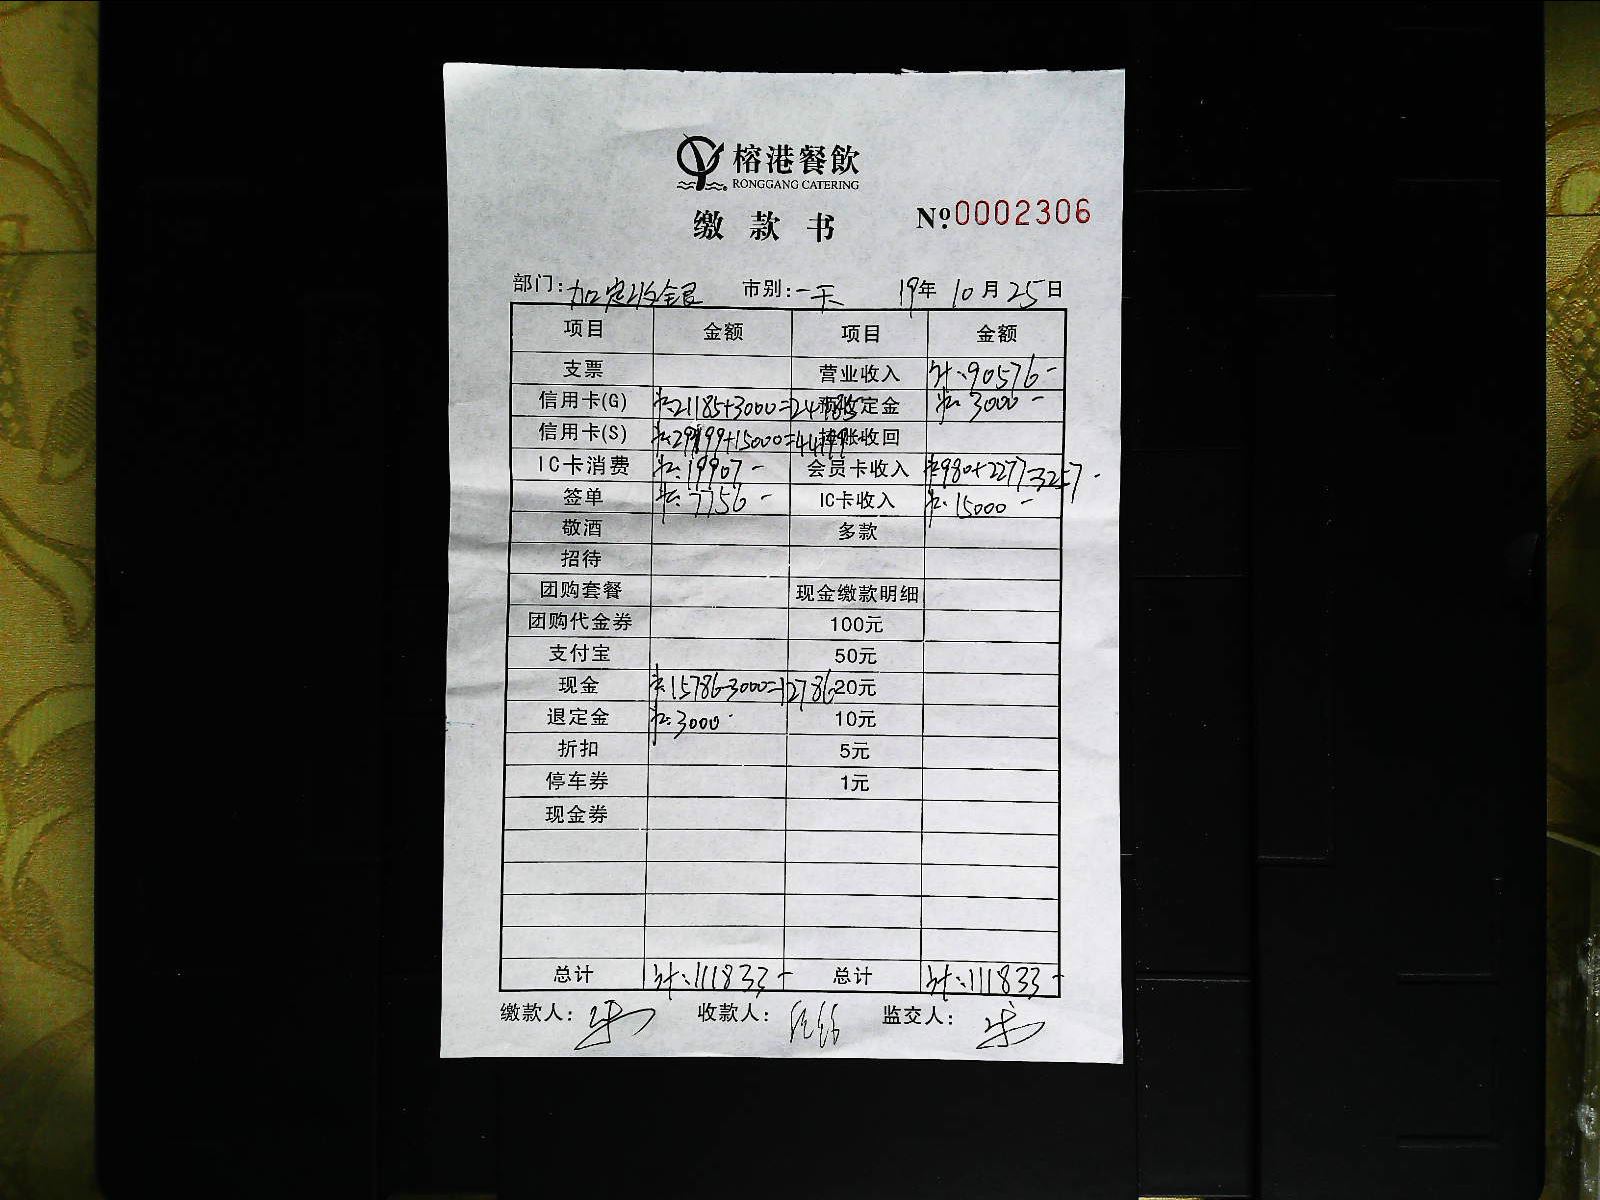 榕港餐飲
RONGGANG CATERING
缴款书 №0002306
部门: 加定收银 市别: 一天 19年 10月 25日
项目 金额 项目 金额
支票 营业收入 ¥:90576-
信用卡(G) ¥:21185+3000=24185 预收定金 ¥:3000-
信用卡(S) ¥:29199+15000=44199- 挂账收回
IC卡消费 ¥:19907- 会员卡收入 ¥980+2277=3257-
签单 ¥:7756- IC卡收入 ¥:15000-
敬酒 多款
招待
团购套餐 现金缴款明细
团购代金券 100元
支付宝 50元
现金 ¥:15786-3000=12786 20元
退定金 ¥:3000- 10元
折扣 5元
停车券 1元
现金券
总计 ¥:111833- 总计 ¥:111833-
缴款人: 收款人: 监交人: